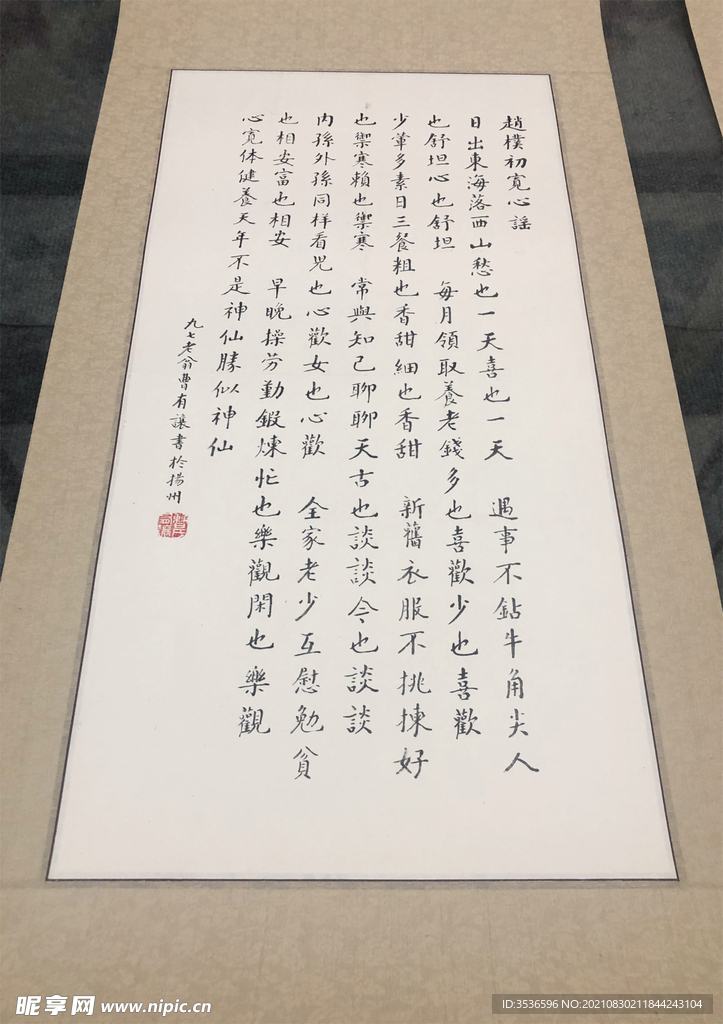 趙樸初寬心謠
日出東海落西山愁也一天喜也一天 遇事不鉆牛角尖人
也舒坦心也舒坦 每月領取養老錢多也喜歡少也喜歡
少葷多素日三餐粗也香甜細也香甜 新舊衣服不挑揀好
也禦寒賴也禦寒 常與知己聊聊天古也談談今也談談
内孫外孫同样看児也心歡女也心歡 全家老少互慰勉貧
也相安富也相安 早晚操劳勤鍛煉忙也樂觀閑也樂觀
心寬体健養天年不是神仙勝似神仙
九七老翁曹有讓書於揚州
昵享网 www.nipic.cn
ID:3536596 NO:20210830211844243104